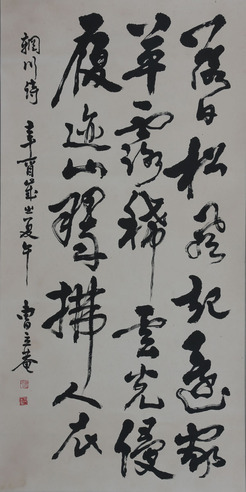 落日松風起還家
草露稀云光侵
履迹山翠拂人衣
輞川詩 辛酉歲之夏午 曹立庵